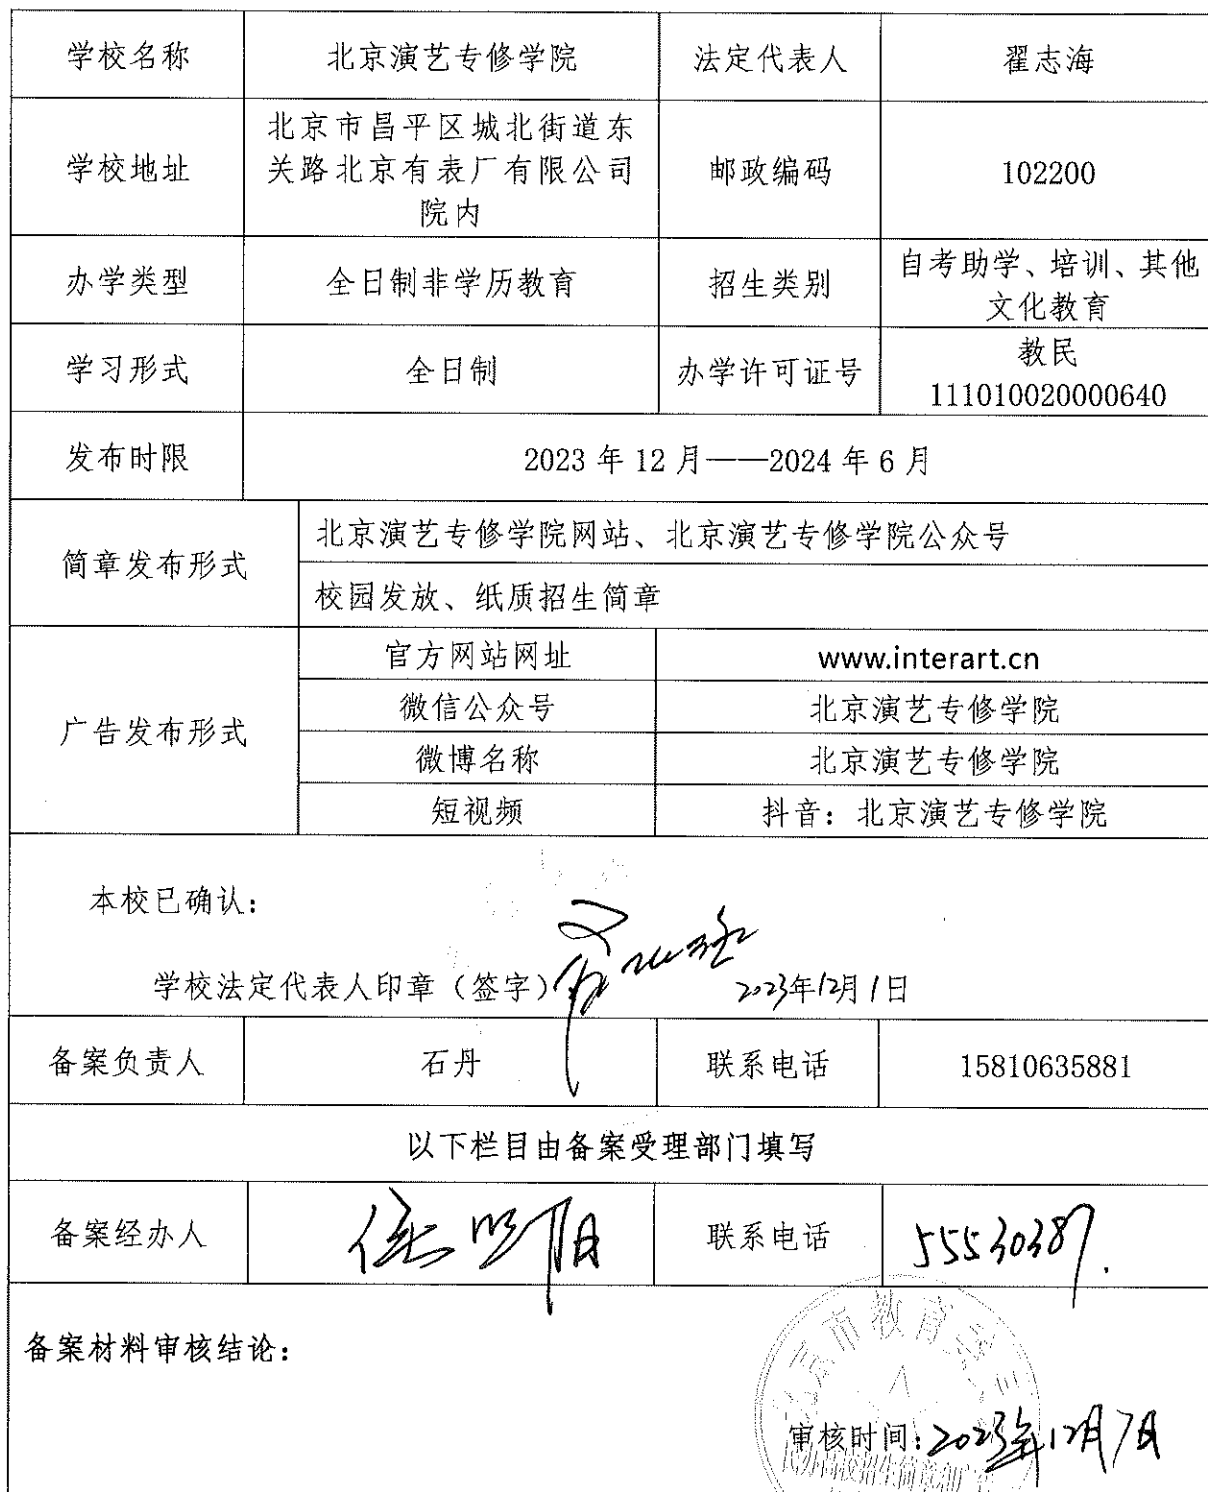 学校名称 北京演艺专修学院 法定代表人 翟志海
学校地址 北京市昌平区城北街道东
关路北京有表厂有限公司
院内 邮政编码 102200
办学类型 全日制非学历教育 招生类别 自考助学、培训、其他
文化教育
学习形式 全日制 办学许可证号 教民
111010020000640
发布时限 2023 年 12 月——2024 年 6 月
简章发布形式 北京演艺专修学院网站、北京演艺专修学院公众号
校园发放、纸质招生简章
广告发布形式 官方网站网址 www.interart.cn
微信公众号 北京演艺专修学院
微博名称 北京演艺专修学院
短视频 抖音：北京演艺专修学院
本校已确认：
学校法定代表人印章（签字） 2023年12月1日
备案负责人 石丹 联系电话 15810635881
以下栏目由备案受理部门填写
备案经办人 联系电话 55530387.
备案材料审核结论：
北京市教育委员
审核时间：2023年12月7日
民办高校招生简章和广